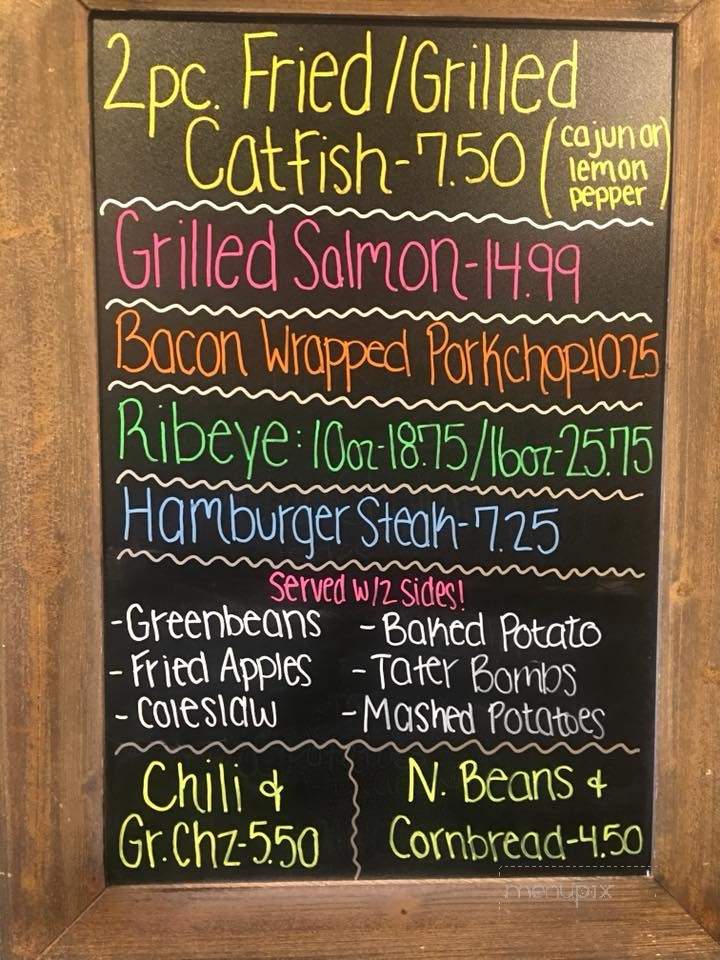 2pc. Fried/Grilled
Catfish-7.50 (cajun or
lemon
pepper)
Grilled Salmon-14.99
Bacon Wrapped Porkchop-10.25
Ribeye: 10oz-18.75/16oz-25.75
Hamburger Steak-7.25
Served w/2 sides!
-Greenbeans -Baked Potato
-Fried Apples -Tater Bombs
-Coleslaw -Mashed Potatoes
Chili &
Gr.Chz-5.50
N. Beans &
Cornbread-4.50
menupix